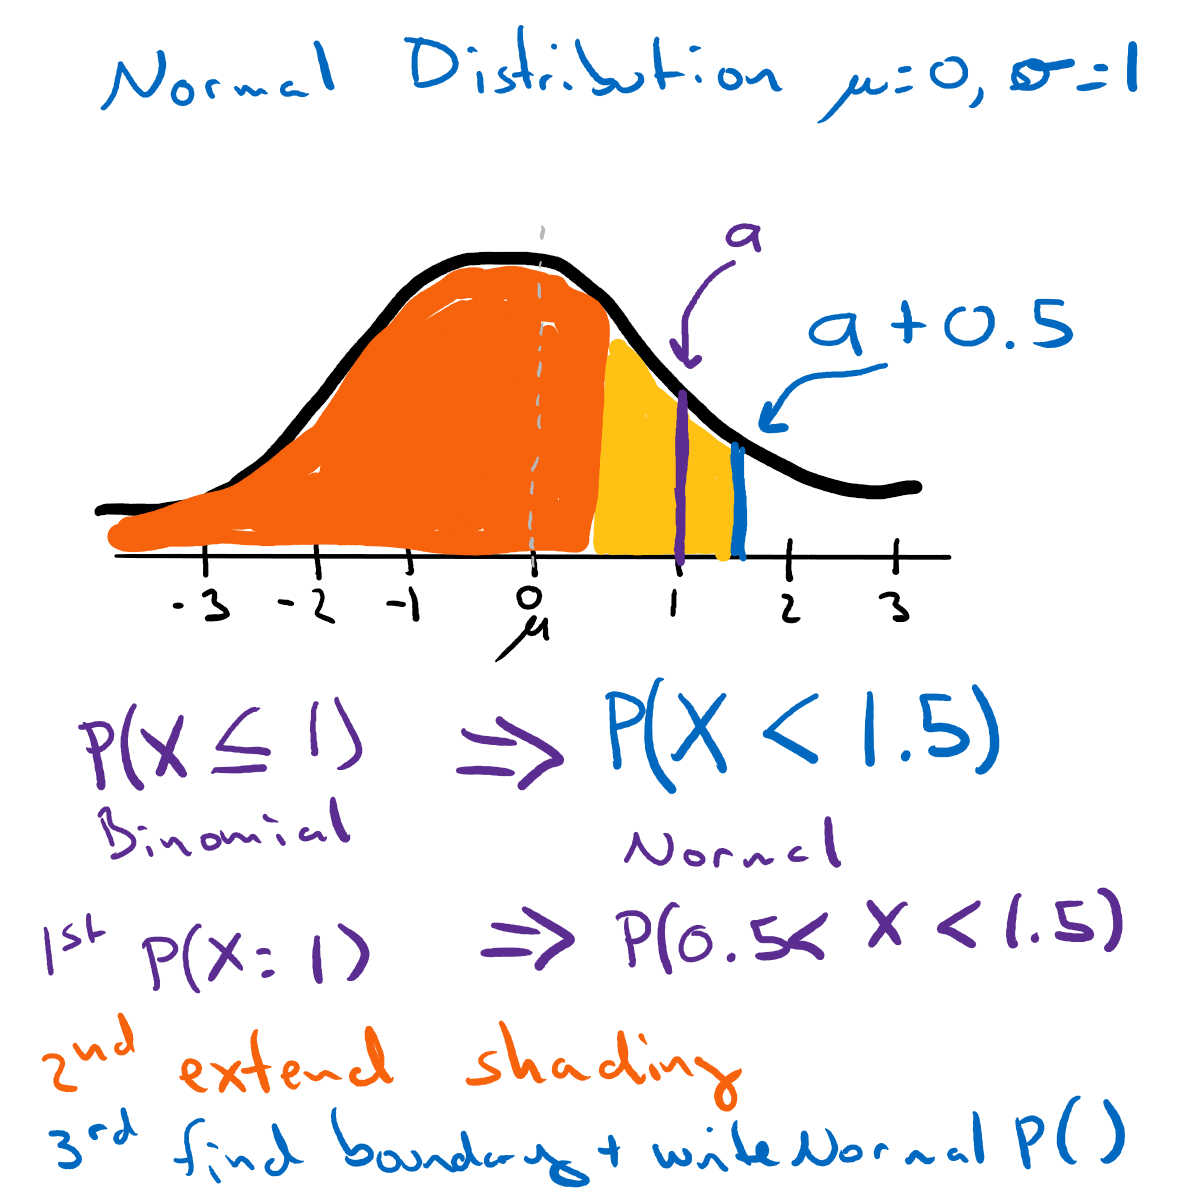 Normal Distribution μ=0, σ=1
a
a+0.5
-3 -2 -1 0 1 2 3
μ
P(X ≤ 1) ⇒ P(X < 1.5)
Binomial Normal
1st P(X=1) ⇒ P(0.5< X < 1.5)
2nd extend shading
3rd find boundary + write Normal P()